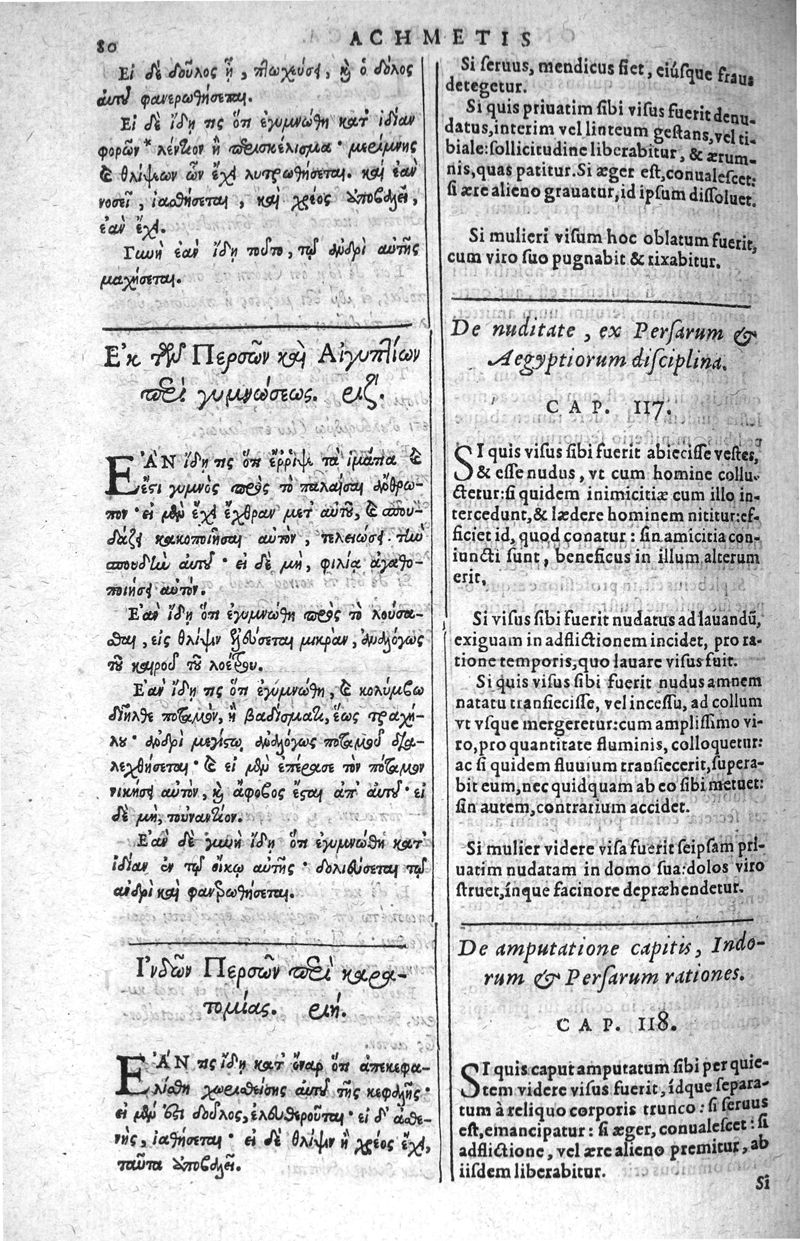 80
ACHMETIS
Εἰ δὲ δοῦλος ᾖ, πτωχεύσει, καὶ ὁ δόλος
αὐτοῦ φανερωθήσεται.
Εἰ δὲ ἴδῃ τις ὅτι ἐγυμνώθη κατ' ἰδίαν
φορῶν* λέντιον ἢ περισκέλισμα· μερίμνης
καὶ θλίψεων ὧν ἔχει λυτρωθήσεται. καὶ ἐὰν
νοσεῖ, ἰαθήσεται, καὶ χρέος ὑποβαλεῖ,
ἐὰν ἔχῃ.
Γυνὴ ἐὰν ἴδῃ τοῦτο, τῷ ἀνδρὶ αὐτῆς
μαχήσεται.
Εκ τῶν Περσῶν καὶ Αἰγυπτίων
περὶ γυμνώσεως. ριζ.
ΕΑΝ ἴδῃ τις ὅτι ἔρριψε τὰ ἱμάτια καὶ
ἔστι γυμνὸς πρὸς τὸ παλαῖσαι ἄνθρω-
πον· εἰ μὲν ἔχει ἔχθραν μετ' αὐτοῦ, καὶ σπου-
δάζει κακοποιῆσαι αὐτὸν, τελειώσει τὴν
σπουδὴν αὐτοῦ· εἰ δὲ μὴ, φιλία ἀγαθο-
ποιήσει αὐτόν.
Ἐὰν ἴδῃ ὅτι ἐγυμνώθη πρὸς τὸ λούσα-
σθαι, εἰς θλίψιν ἐμβύσεται μικρὰν, ἀναλόγως
τοῦ καιροῦ τοῦ λοέτρου.
Ἐὰν ἴδῃ τις ὅτι ἐγυμνώθη, καὶ κολύμβῳ
διῆλθε ποταμὸν, ἢ βαδίσματι, ἕως τραχή-
λου· ἀνδρὶ μεγίστῳ ἀναλόγως ποταμοῦ δια-
λεχθήσεται· καὶ εἰ μὲν ἐπέρασε τὸν ποταμὸν
νικήσει αὐτὸν, καὶ ἄφοβος ἔσται ἀπ' αὐτοῦ· εἰ
δὲ μὴ, τοὐναντίον.
Ἐὰν δὲ γυνὴ ἴδῃ ὅτι ἐγυμνώθη κατ'
ἰδίαν ἐν τῷ οἴκῳ αὐτῆς· δολιεύσεται τῷ
ἀνδρὶ καὶ φανερωθήσεται.
Ινδῶν Περσῶν περὶ καρα-
τομίας. ριή.
ΕΑΝ τις ἴδῃ κατ' ὄναρ ὅτι ἀπεκεφα-
λίσθη χωρισθείσης αὐτοῦ τῆς κεφαλῆς·
εἰ μὲν ἔστι δοῦλος, ἐλευθεροῦται· εἰ δ' ἀσθε-
νὴς, ἰαθήσεται· εἰ δὲ θλίψιν ἢ χρέος ἔχει,
ταῦτα ὑποβαλεῖ.
Si seruus, mendicus fiet, eiúsque fraus
detegetur.
Si quis priuatim sibi visus fuerit denu-
datus, interim vel linteum gestans, vel ti-
biale: sollicitudine liberabitur, & ærum-
nis, quas patitur. Si æger est, conualescet:
si ære alieno grauatur, id ipsum dissoluet.
Si mulieri visum hoc oblatum fuerit,
cum viro suo pugnabit & rixabitur.
De nuditate, ex Persarum &
Aegyptiorum disciplina.
CAP. 117.
SI quis visus sibi fuerit abiecisse vestes,
& esse nudus, vt cum homine collu-
ctetur: si quidem inimicitiæ cum illo in-
tercedunt, & lædere hominem nititur: ef-
ficiet id, quod conatur: sin amicitia con-
iuncti sunt, beneficus in illum alterum
erit.
Si visus sibi fuerit nudatus ad lauandū,
exiguam in adflictionem incidet, pro ra-
tione temporis, quo lauare visus fuit.
Si quis visus sibi fuerit nudus amnem
natatu transiecisse, vel incessu, ad collum
vt vsque mergeretur: cum amplissimo vi-
ro, pro quantitate fluminis, colloquetur:
ac si quidem fluuium transiecerit, supera-
bit eum, nec quidquam ab eo sibi metuet:
sin autem, contrarium accidet.
Si mulier videre visa fuerit seipsam pri-
uatim nudatam in domo sua: dolos viro
struet, ínque facinore depræhendetur.
De amputatione capitis, Indo-
rum & Persarum rationes.
CAP. 118.
SI quis caput amputatum sibi per quie-
tem videre visus fuerit, ídque separa-
tum à reliquo corporis trunco: si seruus
est, emancipatur: si æger, conualescet: si
adflictione, vel ære alieno premitur, ab
iisdem liberabitur.
Si